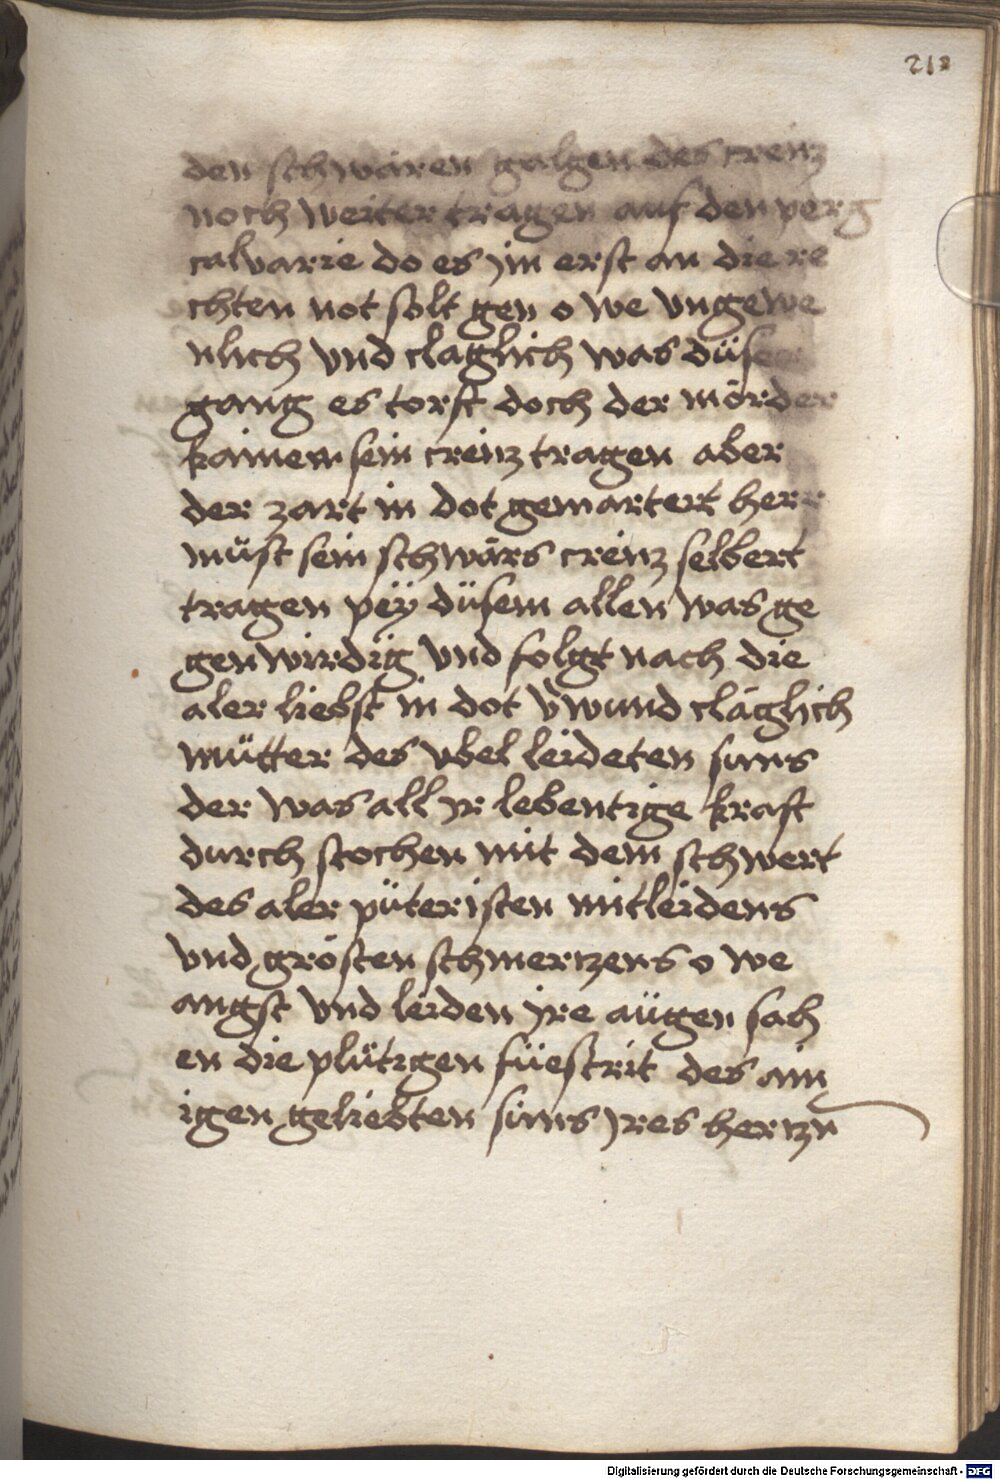 212
den schwären galgen des creiuz
noch weiter tragen auf den perg
calvarie do es jm erst an die re
chten not solt gen o we vngewe
nlich vnd claglich was düser
gang es torst doch der mörder
kainem sein creiuz tragen aber
der zart in dot gemartert herr
müst sein schwärs creiuz selbert
tragen pëy düsem allen was ge
genwirdig vnd folgt nach die
aler liebst in dot v̾wund cläglich
mütter des vbel leideten suns
der was all jr lebentige kraft
durch stochen mit dem schwert
des aler püteristen mitleidens
vnd grösten schmerczens o we
angst vnd leiden jre aügen sach
en die plütigen füestrit des ain
igen geliebten suns jres herczn
Digitalisierung gefördert durch die Deutsche Forschungsgemeinschaft - DFG